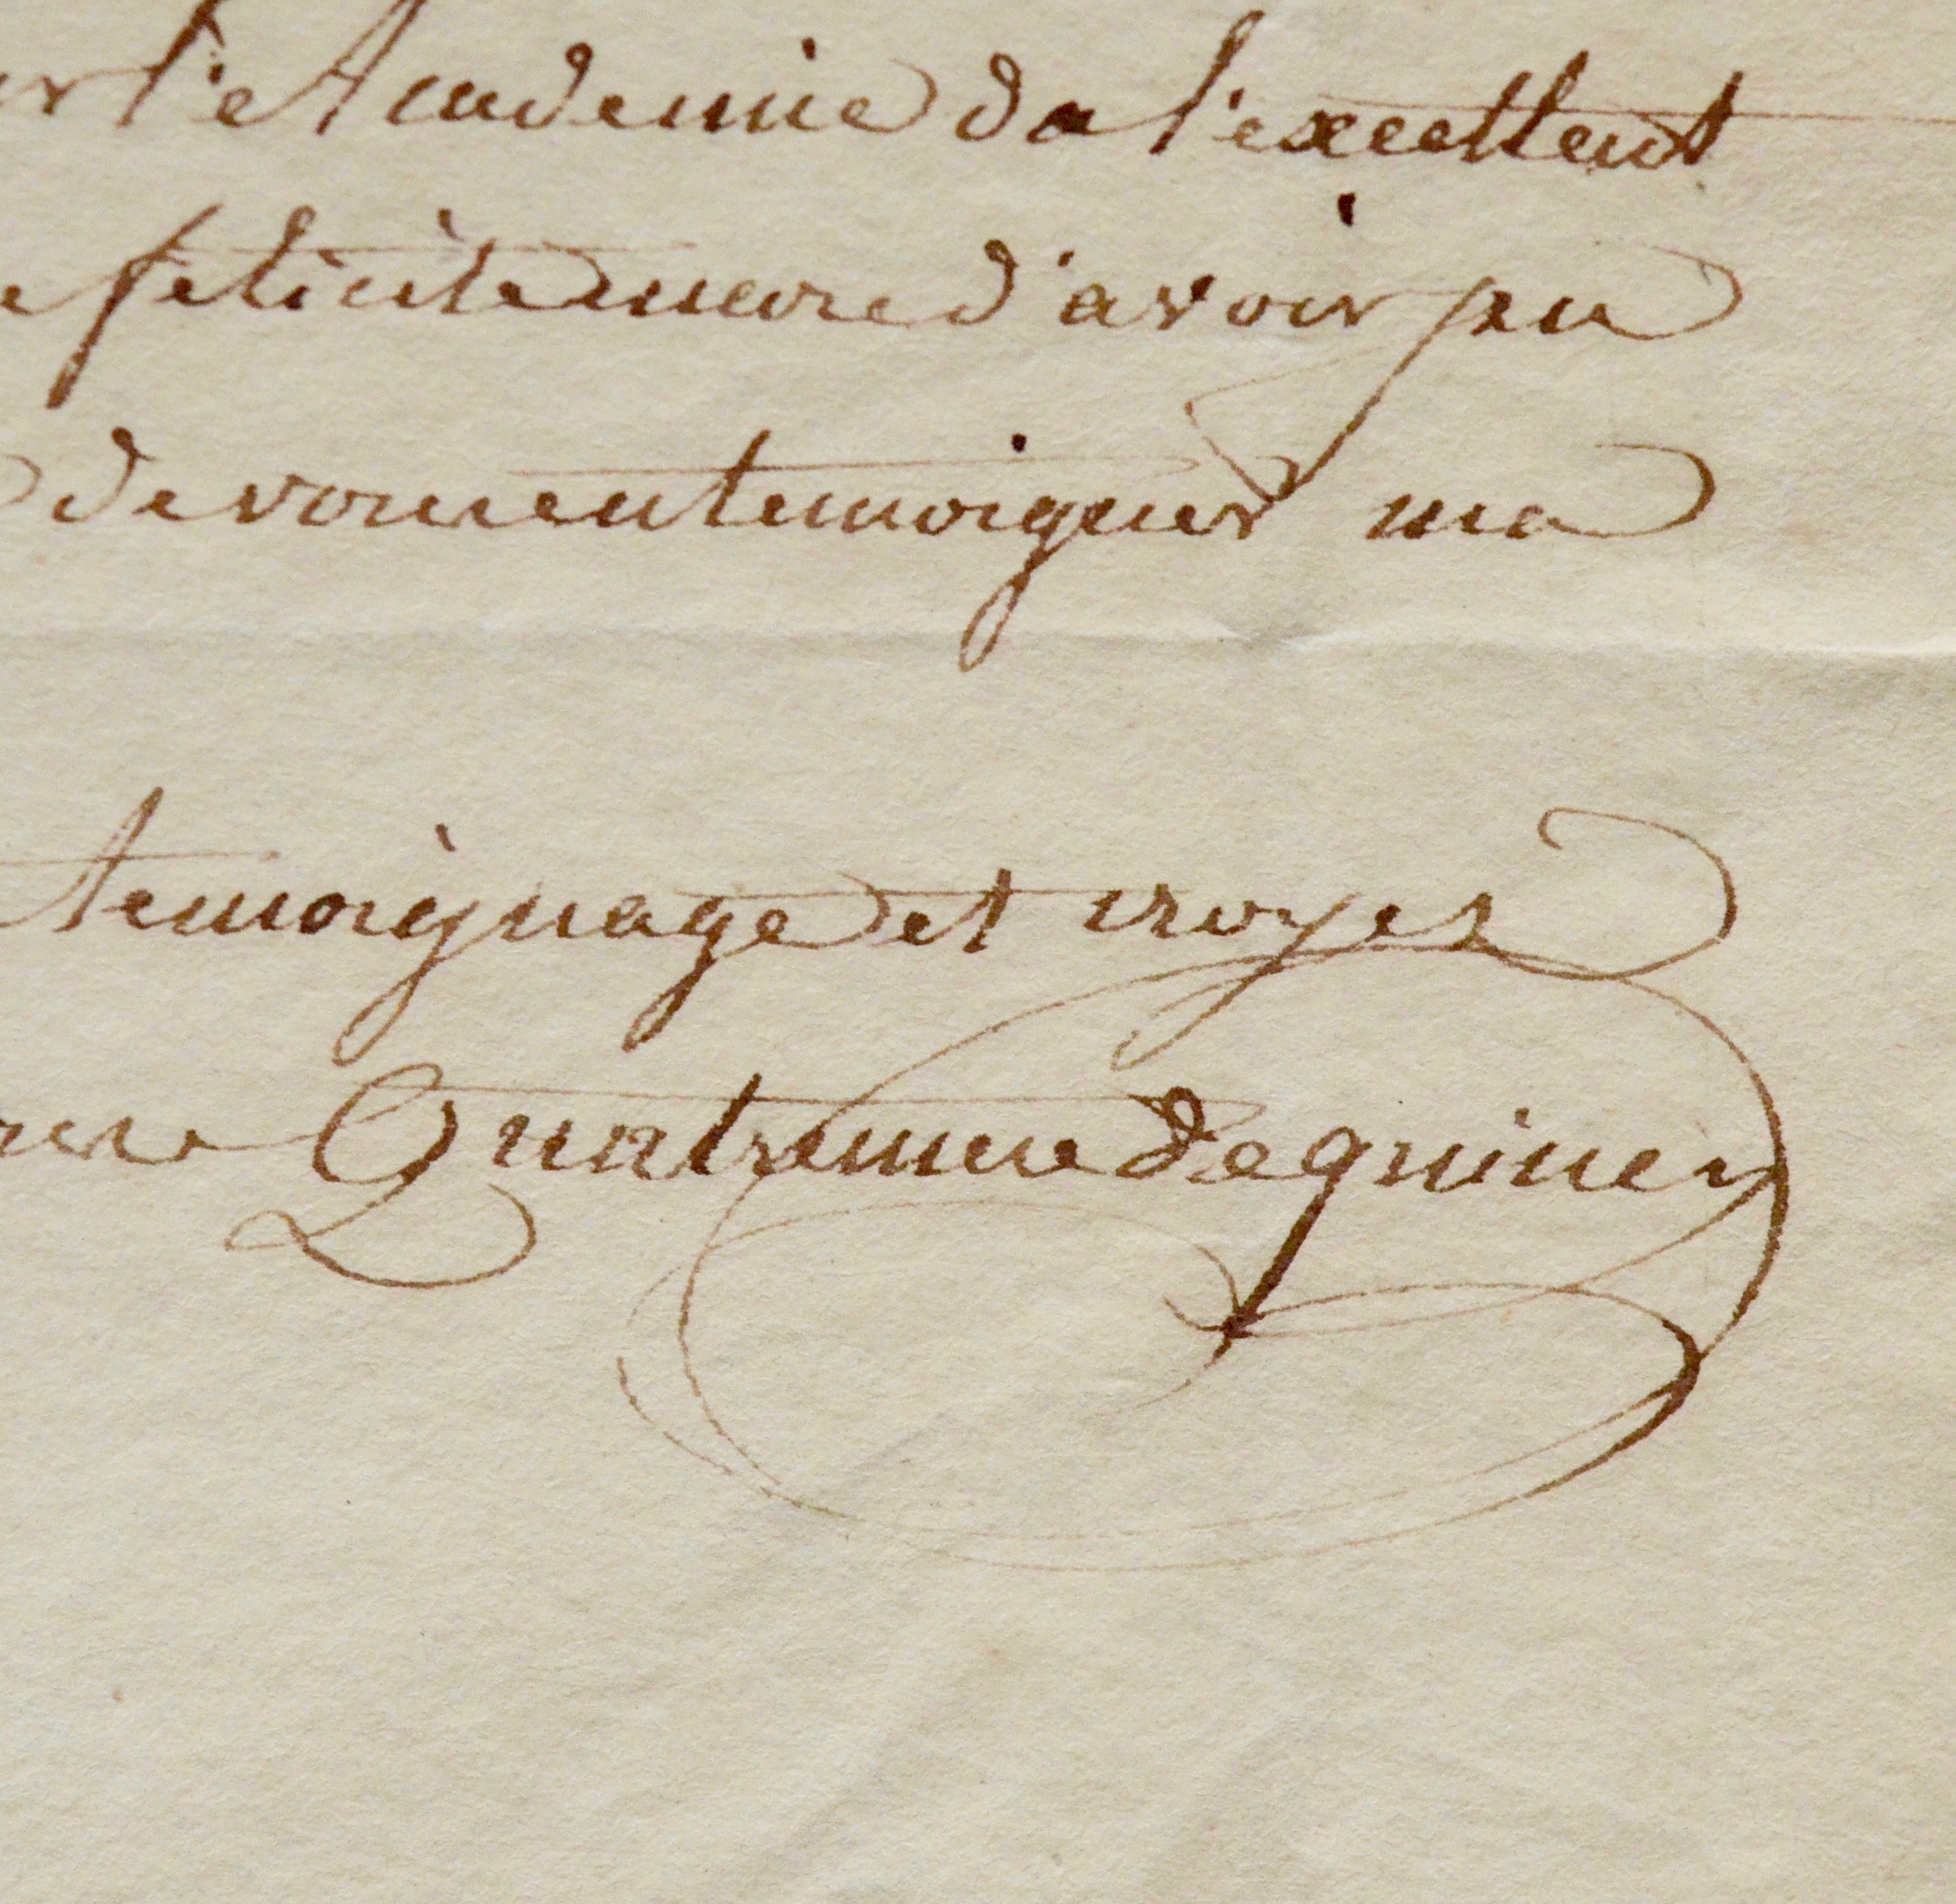 l'Academie de l'excellent
felicite encore d'avoir pu
de vous en temoigner ma
temoignage et croyez
Quatremere de quincy